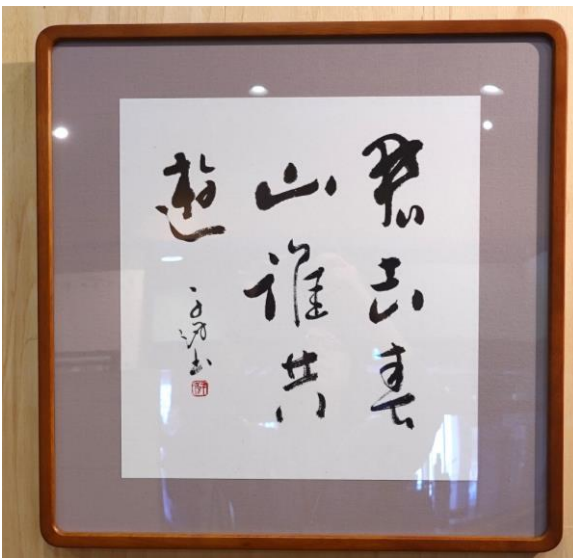 君去春
山谁共
遊